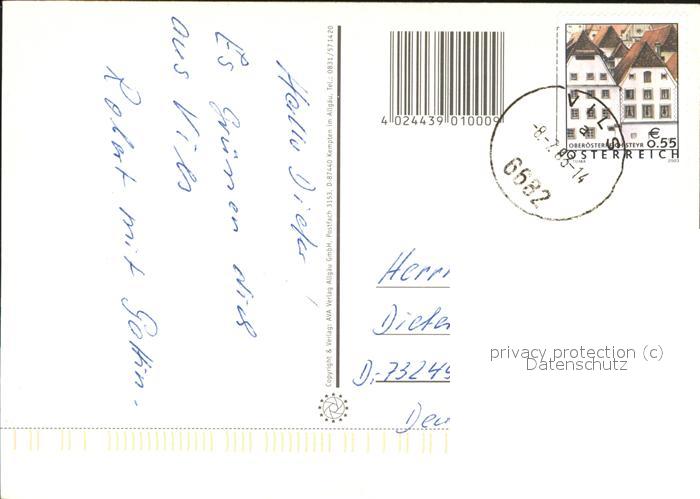 Hallo Dieter!
Es Grüssen dich
aus Vils
Robert mit Gattin.
Copyright & Verlag: AVA Verlag Allgäu GmbH, Postfach 3153, D-87440 Kempten im Allgäu, Tel.: 0831/571420
4 024439 010009
VILS
6682
OBERÖSTERREICH STEYR
€ 0.55
ÖSTERREICH
2003
Herrn
Dieter
D-73249
privacy protection (c)
Datenschutz